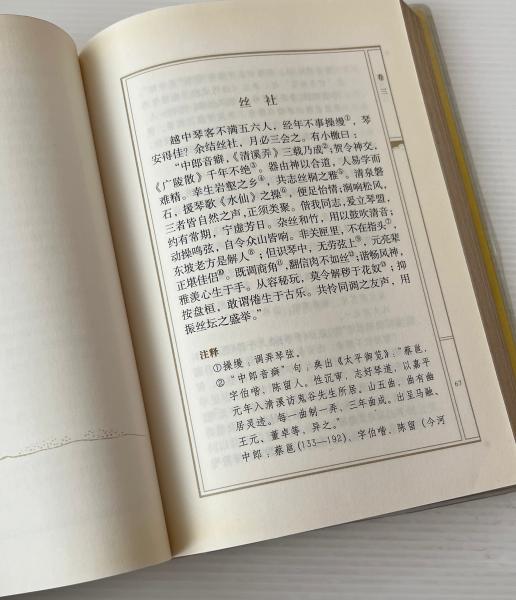 卷三
丝社
越中琴客不满五六人，经年不事操缦①，琴
安得佳？余结丝社，月必三会之。有小檄曰：
“中郎音癖，《清溪弄》三载乃成②；贺令神交，
《广陵散》千年不绝③。器由神以合道，人易学而
难精。幸生岩壑之乡④，共志丝桐之雅⑤。清泉磐
石，援琴歌《水仙》之操⑥，便足怡情；涧响松风，
三者皆自然之声，正须类聚。偕我同志，爰立琴盟，
约有常期，宁虚芳日。杂丝和竹，用以鼓吹清音；
动操鸣弦，自令众山皆响。非关匣里，不在指头⑦，
东坡老方是解人⑧；但识琴中，无劳弦上⑨，元亮辈
正堪佳侣⑩。既调商角⑪，翻信肉不如丝⑫；谐畅风神，
雅羡心生于手。从容秘玩，莫令解秽于花奴⑬；抑
按盘桓，敢谓倦生于古乐。共怜同调之友声，用
振丝坛之盛举。”
注释
①操缦：调弄琴弦。
②“中郎音癖”句：典出《太平御览》：“蔡邕，
字伯喈，陈留人。性沉审，志好琴道，以嘉平
元年入清溪访鬼谷先生所居。山五曲，曲有幽
居灵迹。每一曲制一弄，三年曲成。出呈马融、
王元、董卓等，异之。”
中郎：蔡邕(133—192)，字伯喈，陈留（今河
67